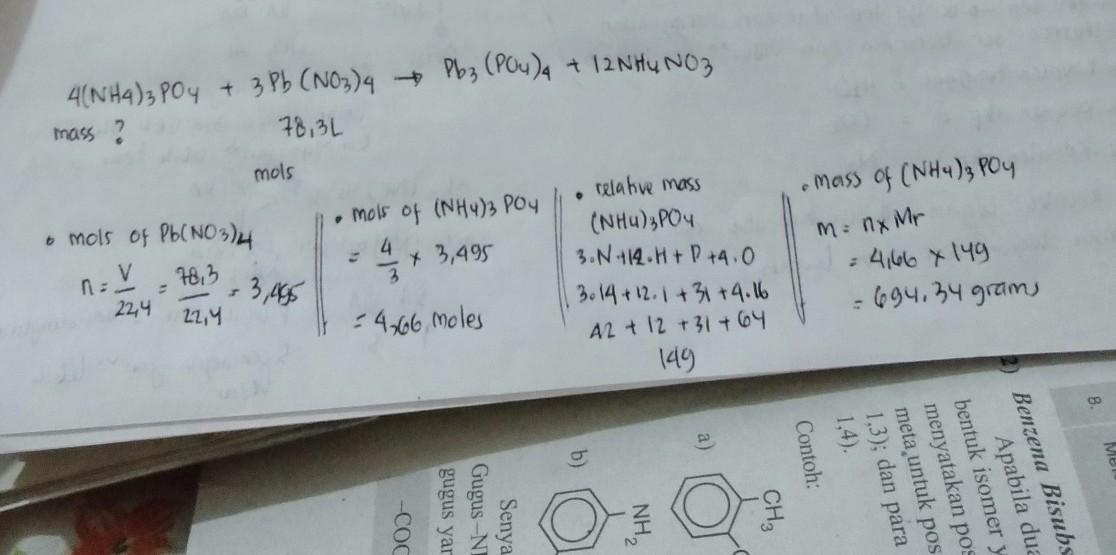 4(NH4)3PO4 + 3Pb(NO3)4 → Pb3(PO4)4 + 12NH4NO3
mass ? 78,3L
mols
• mols of Pb(NO3)4
n = V/22,4 = 78,3/22,4 = 3,495
• mols of (NH4)3PO4
= 4/3 × 3,495
= 4,66 moles
• relative mass
(NH4)3PO4
3.N+12.H+P+4.O
3.14+12.1+31+4.16
42+12+31+64
149
• mass of (NH4)3PO4
m = n×Mr
= 4,66 × 149
= 694.34 grams
8.
2) Benzena Bisubs
Apabila du
bentuk isomer y
menyatakan pos
meta,untuk pos
1,3); dan para
1,4).
Contoh:
a)
CH3
b)
NH2
Senya
Gugus
gugus yan